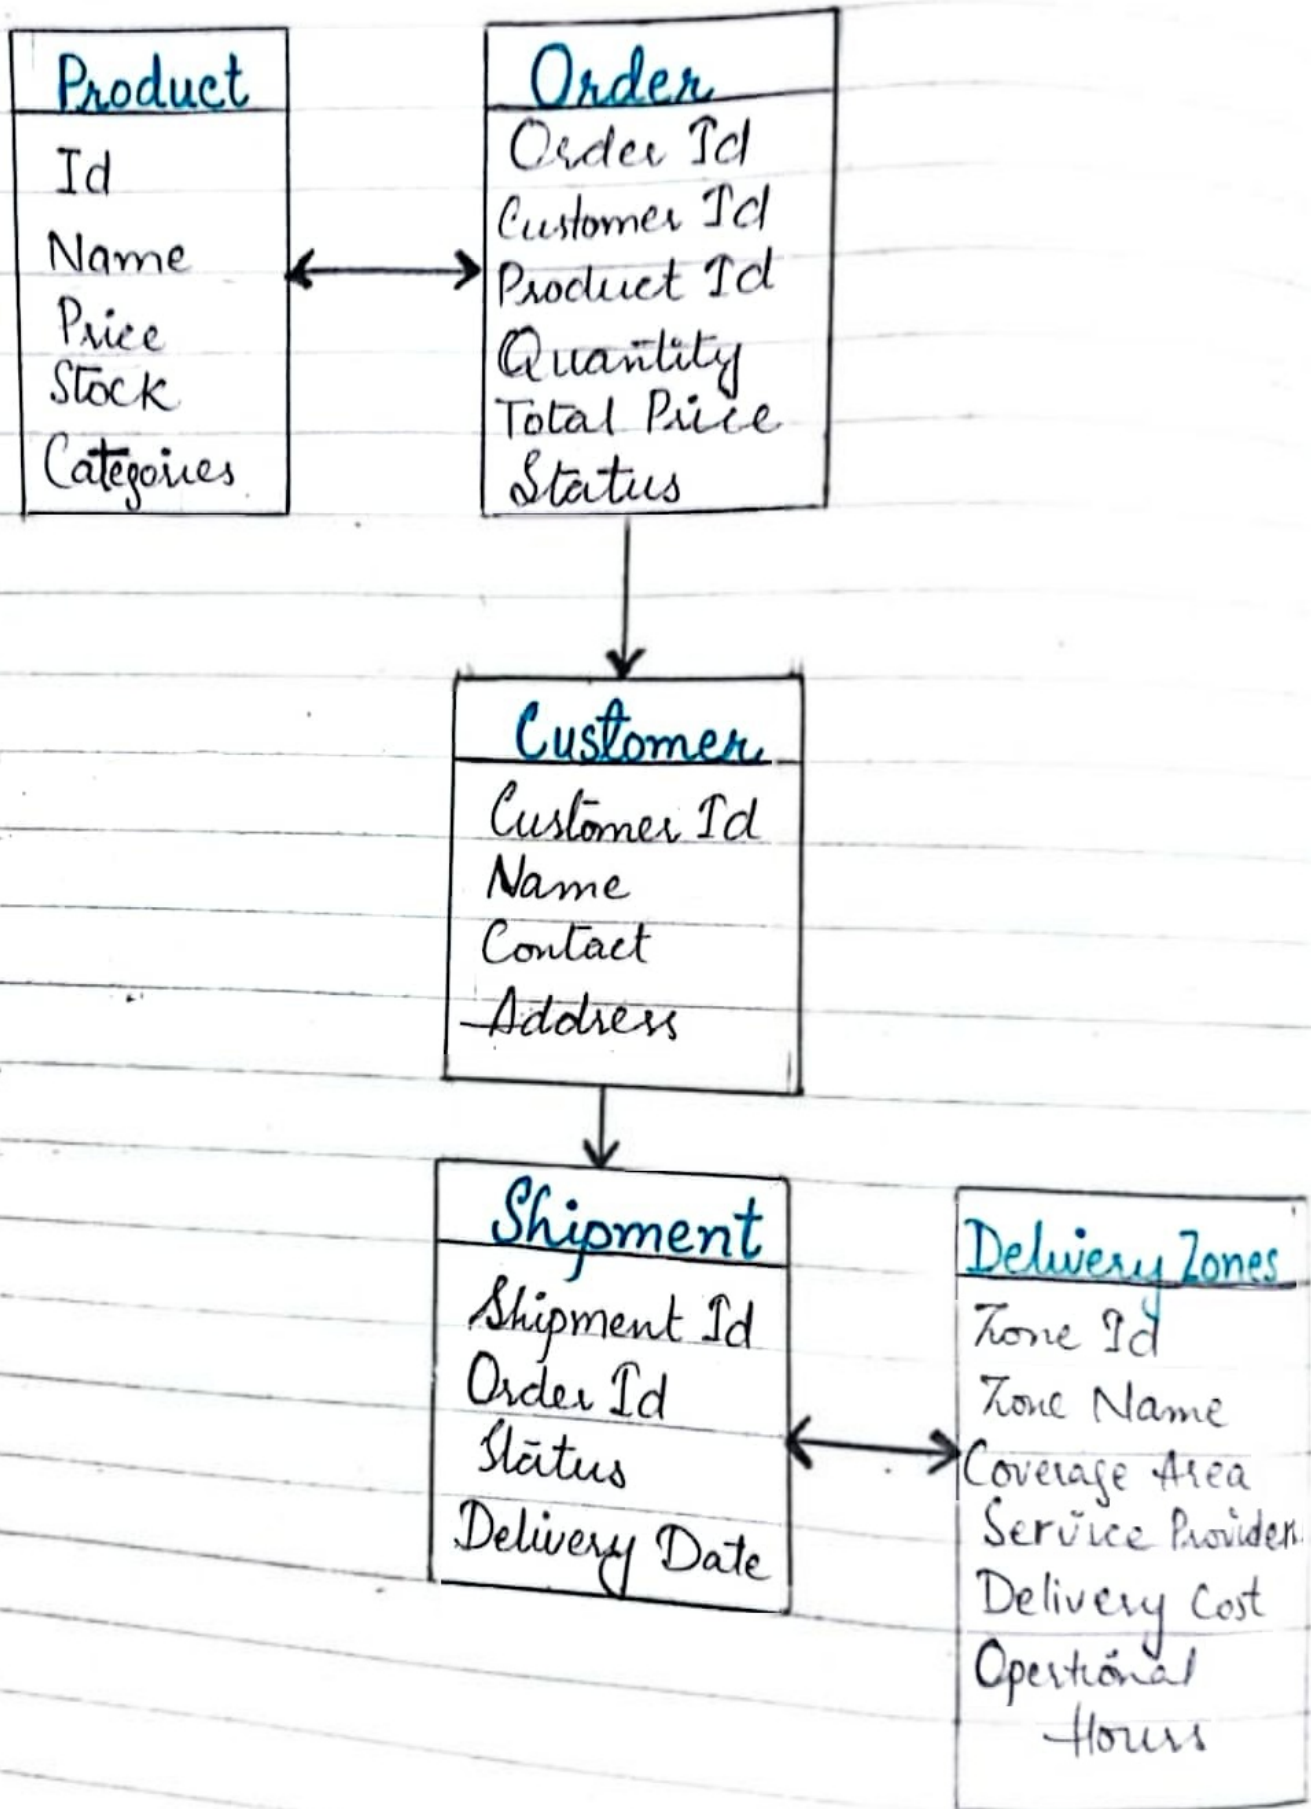 Product
Id
Name
Price
Stock
Categories
Order
Order Id
Customer Id
Product Id
Quantity
Total Price
Status
Customer
Customer Id
Name
Contact
Address
Shipment
Shipment Id
Order Id
Status
Delivery Date
Delivery Zones
Zone Id
Zone Name
Coverage Area
Service Provider
Delivery Cost
Opertional
Hours